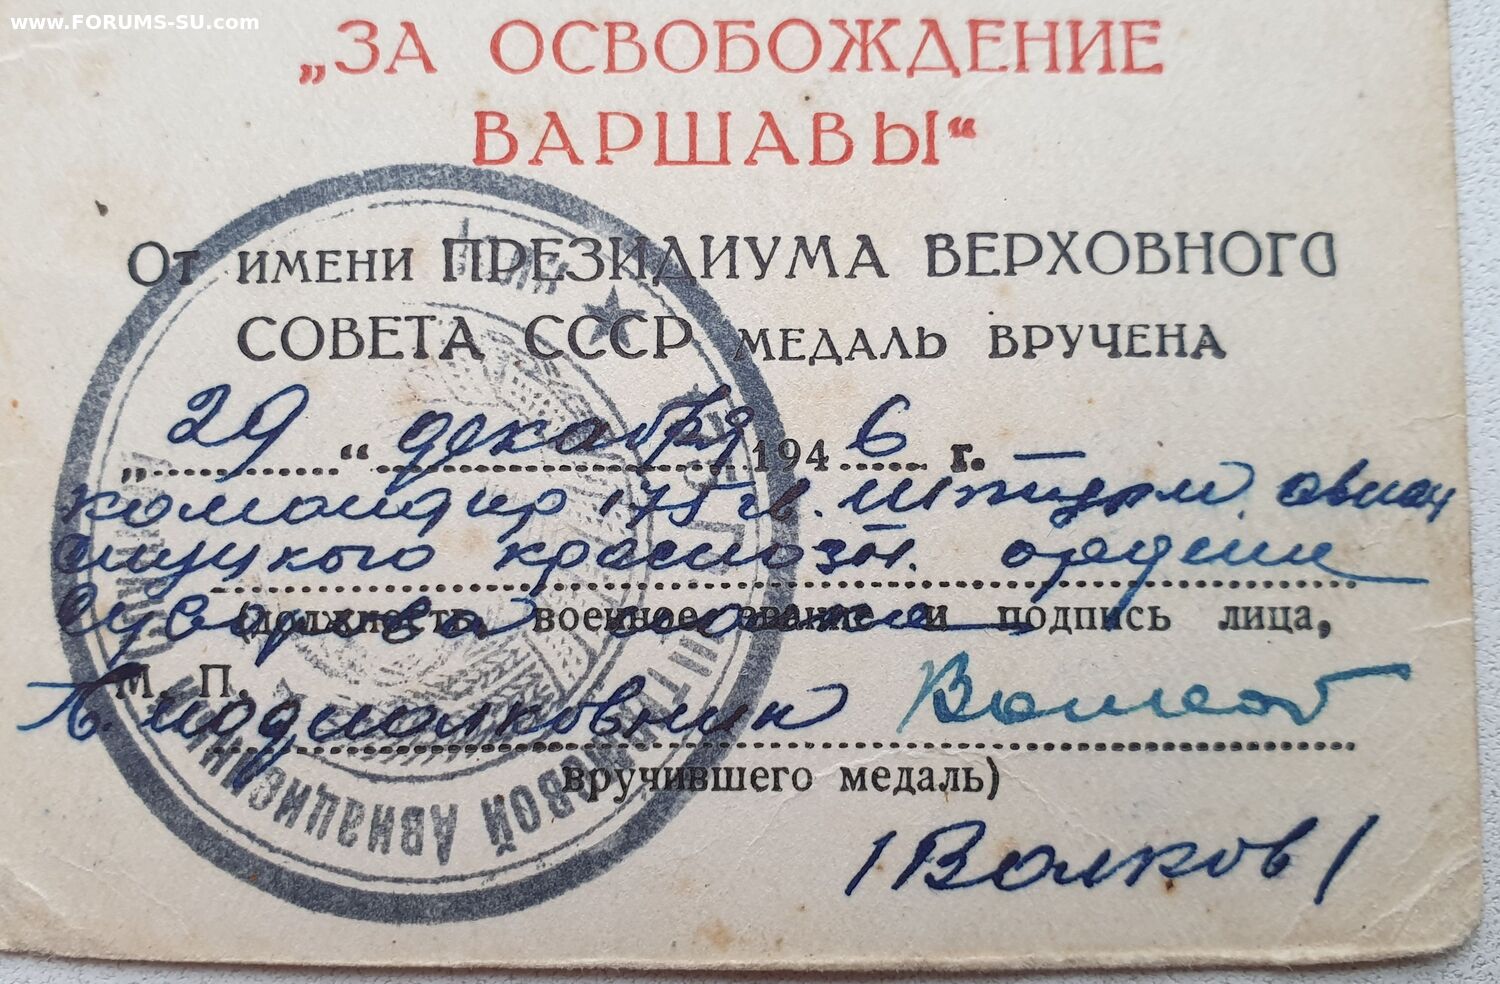 www.FORUMS-SU.com
„ЗА ОСВОБОЖДЕНИЕ
ВАРШАВЫ“
От имени ПРЕЗИДИУМА ВЕРХОВНОГО
СОВЕТА СССР медаль вручена
„29“ декабря 1946 г.
командир 175 гв. штурм. авиац
слуцкого краснозн. ордена
Суворова полка
(должность, военное звание и подпись лица,
М. П.
Гв. подполковник Волков
вручившего медаль)
/Волков/
Штурмовой Авиационный